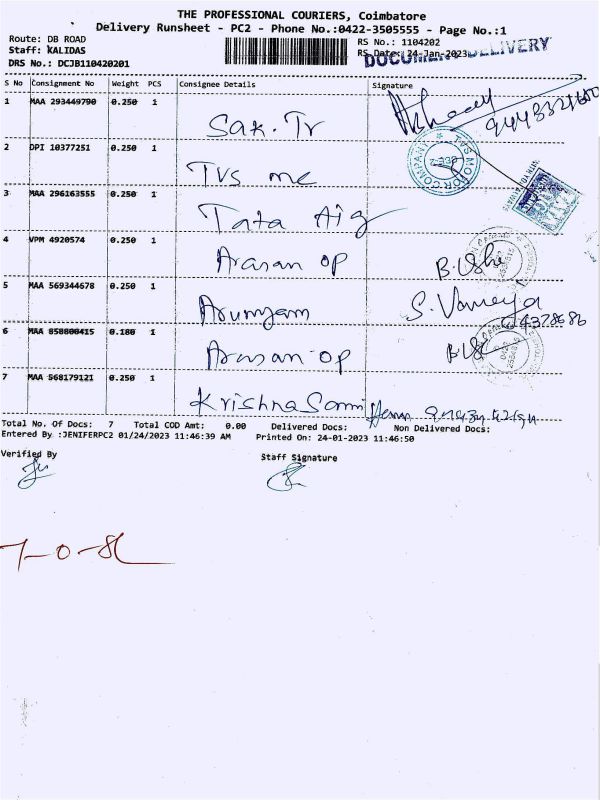 THE PROFESSIONAL COURIERS, Coimbatore
Delivery Runsheet - PC2 - Phone No.:0422-3505555 - Page No.:1
Route: DB ROAD
RS No.: 1104202
Staff: KALIDAS
RS Date: 24-Jan-2023
DOCUMENT DELIVERY
DRS No.: DCJB110420201
S No Consignment No Weight PCS Consignee Details Signature
1 MAA 293449790 0.250 1 Sak. Tr
2 DPI 10377251 0.250 1 TVS mc
TVS MOTOR COMPANY
3 MAA 296163555 0.250 1 Tata Aig
4 VPM 4920574 0.250 1 Arasan op B. Usha
5 MAA 569344678 0.250 1 Arumyam S.
6 MAA 858800415 0.180 1 Arasan op
7 MAA 568179121 0.250 1 Krishna Sami
Total No. Of Docs: 7 Total COD Amt: 0.00 Delivered Docs: Non Delivered Docs:
Entered By :JENIFERPC2 01/24/2023 11:46:39 AM Printed On: 24-01-2023 11:46:50
Verified By
Staff Signature